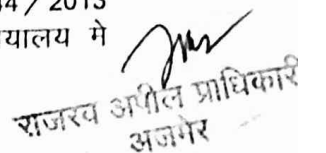 / 2013
यालय मे
राजस्व अपील प्राधिकारी
अजमेर